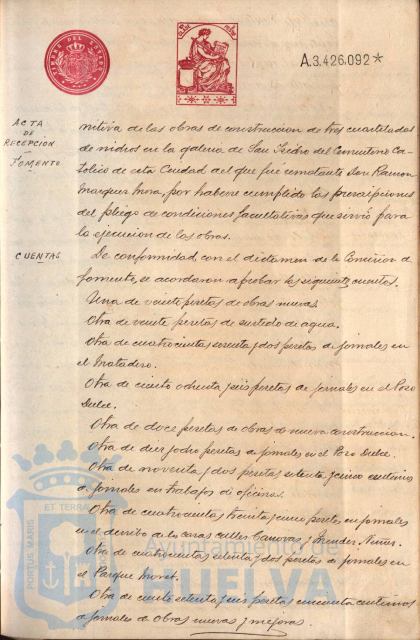 TIMBRE DEL ESTADO
A.3.426.092*
ACTA
DE
RECEPCIÓN
-
FOMENTO
nitiva de las obras de construccion de tres cuarteladas
de nichos en la galeria de San Isidro del Cementerio Ca-
tolico de esta Ciudad del que fue contratante Don Ramon
Marquez Mora, por haberse cumplido las prescripciones
del pliego de condiciones facultativas que sirvió para
la ejecucion de las obras.
CUENTAS
De conformidad con el dictamen de la Comision de
fomento, se acordaron aprobar las siguientes cuentas.
Una de veinte pesetas de obras nuevas.
Otra de veinte pesetas de surtido de agua.
Otra de cuatrocientas sesenta y dos pesetas de jornales en
el Matadero.
Otra de ciento ochenta y seis pesetas de jornales en el Pozo
Dulce.
Otra de doce pesetas de obras de nueva construccion.
Otra de diez y ocho pesetas de jornales en el Pozo Dulce.
Otra de noventa y dos pesetas setenta y cinco centimos
de jornales en trabajos de oficinas.
Otra de cuatrocientas treinta y cinco pesetas en jornales
en el derribo de las casas calles Canovas y Mendez Nuñez.
Otra de cuatrocientas setenta y dos pesetas de jornales en
el Parque Moret.
Otra de ciento setenta y seis pesetas cincuenta centimos
de jornales de obras nuevas y mejoras.
PORTUS MARIS
ET TERRAE
Ayuntamiento de
HUELVA